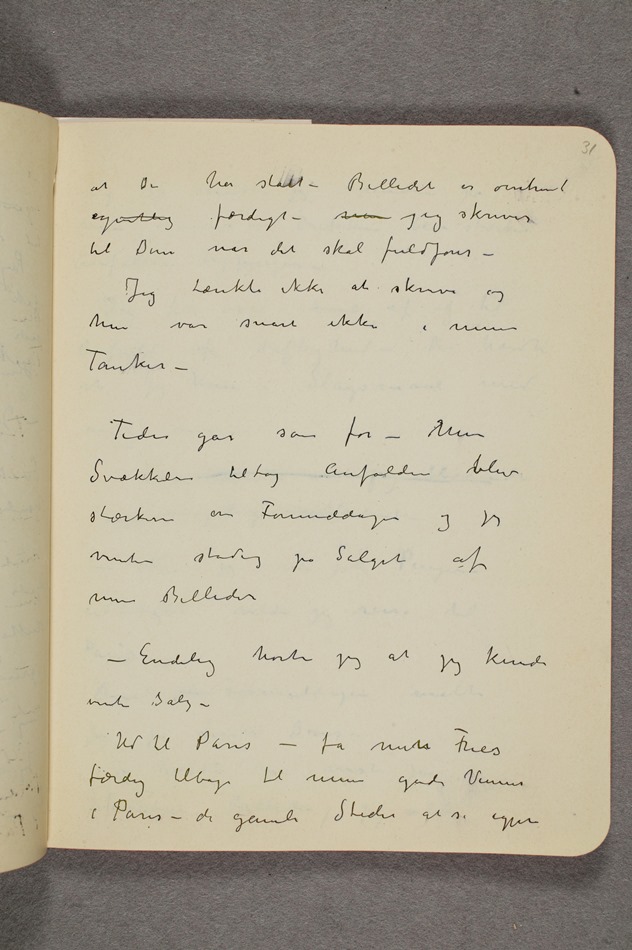 31
at De har statt – Billedet er omtrent
færdigt – jeg skriver
til Dem når det skal fuldføres –
Jeg tænkte ikke at skrive og
hun var snart ikke i mine
Tanker –
Tiden gar som før – Men
Svækkelsen tiltog Anfaldene blev
stærkere om Formiddagen og jeg
ventede stadig på Salget af
mine Billeder
– Endelig hørte jeg at jeg kunde
vente Salg –
Ud til Paris – fa mit Fries
færdig tilbage til mine gode Venner
i Paris – de gamle Steder at se igjen